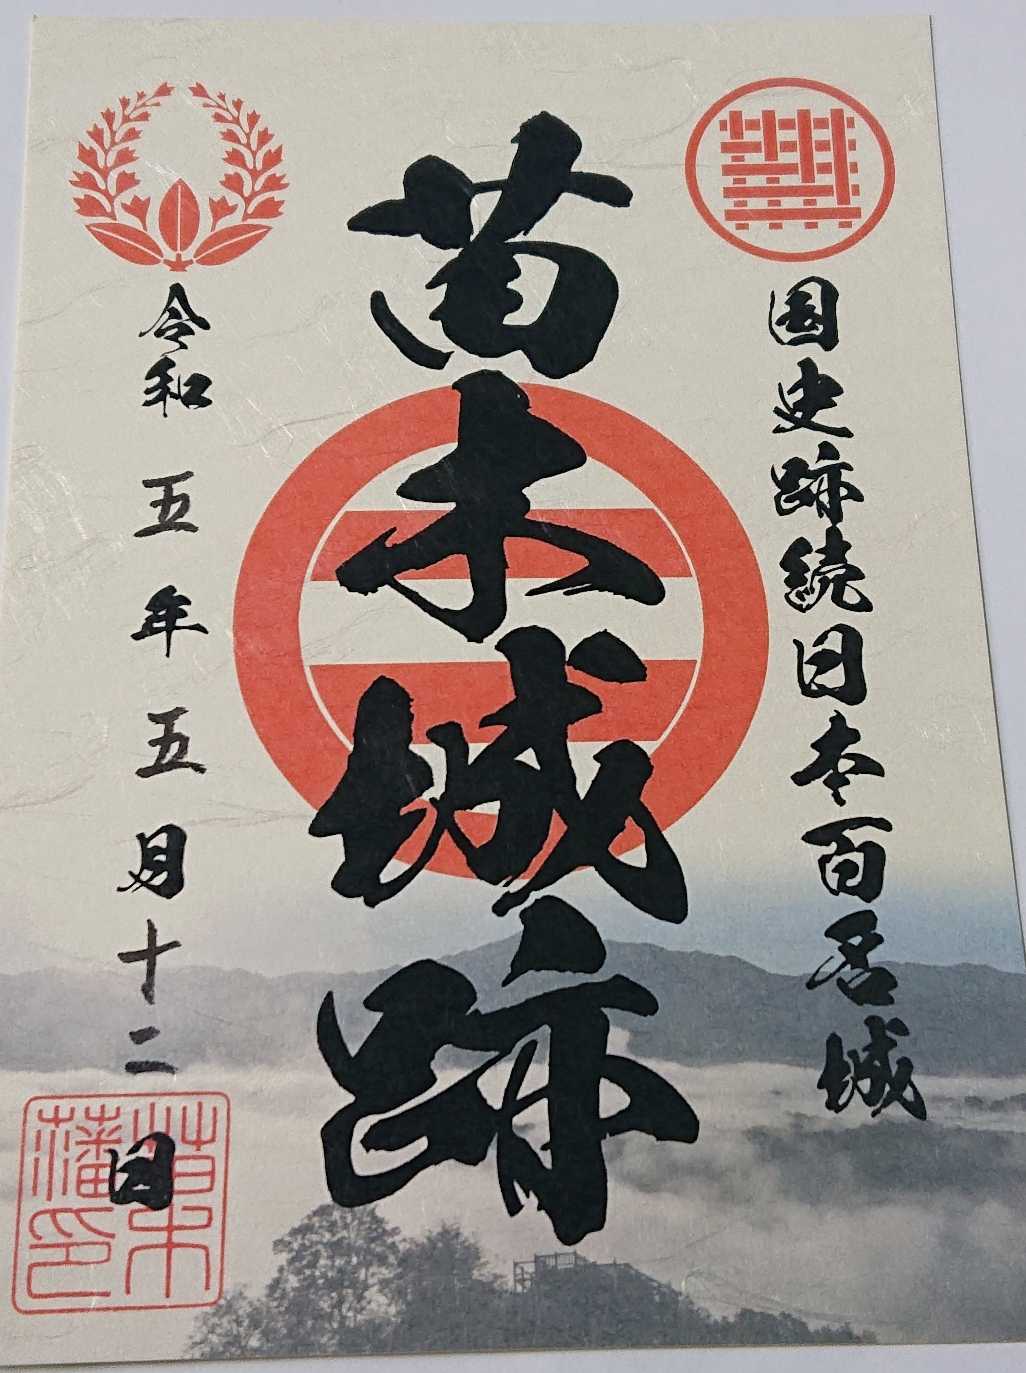 国史跡続日本百名城
苗木城跡
令和五年五月十二日
苗木藩印